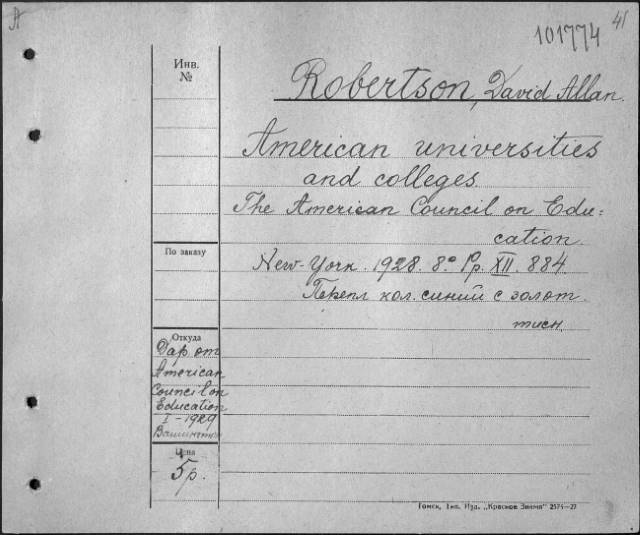 A
101774
41
Инв.
№
Robertson, David Allan.
American universities
and colleges.
The American Council on Edu=
cation.
По заказу
New-York. 1928. 8° Pp. XII. 884.
Перепл кол. синий с золот.
тисн.
Откуда
Дар от
American
Council on
Education
I-1929
Вашингтон
Цена
5р.
Томск, Тип. Изд. „Красное Знамя" 2574—27